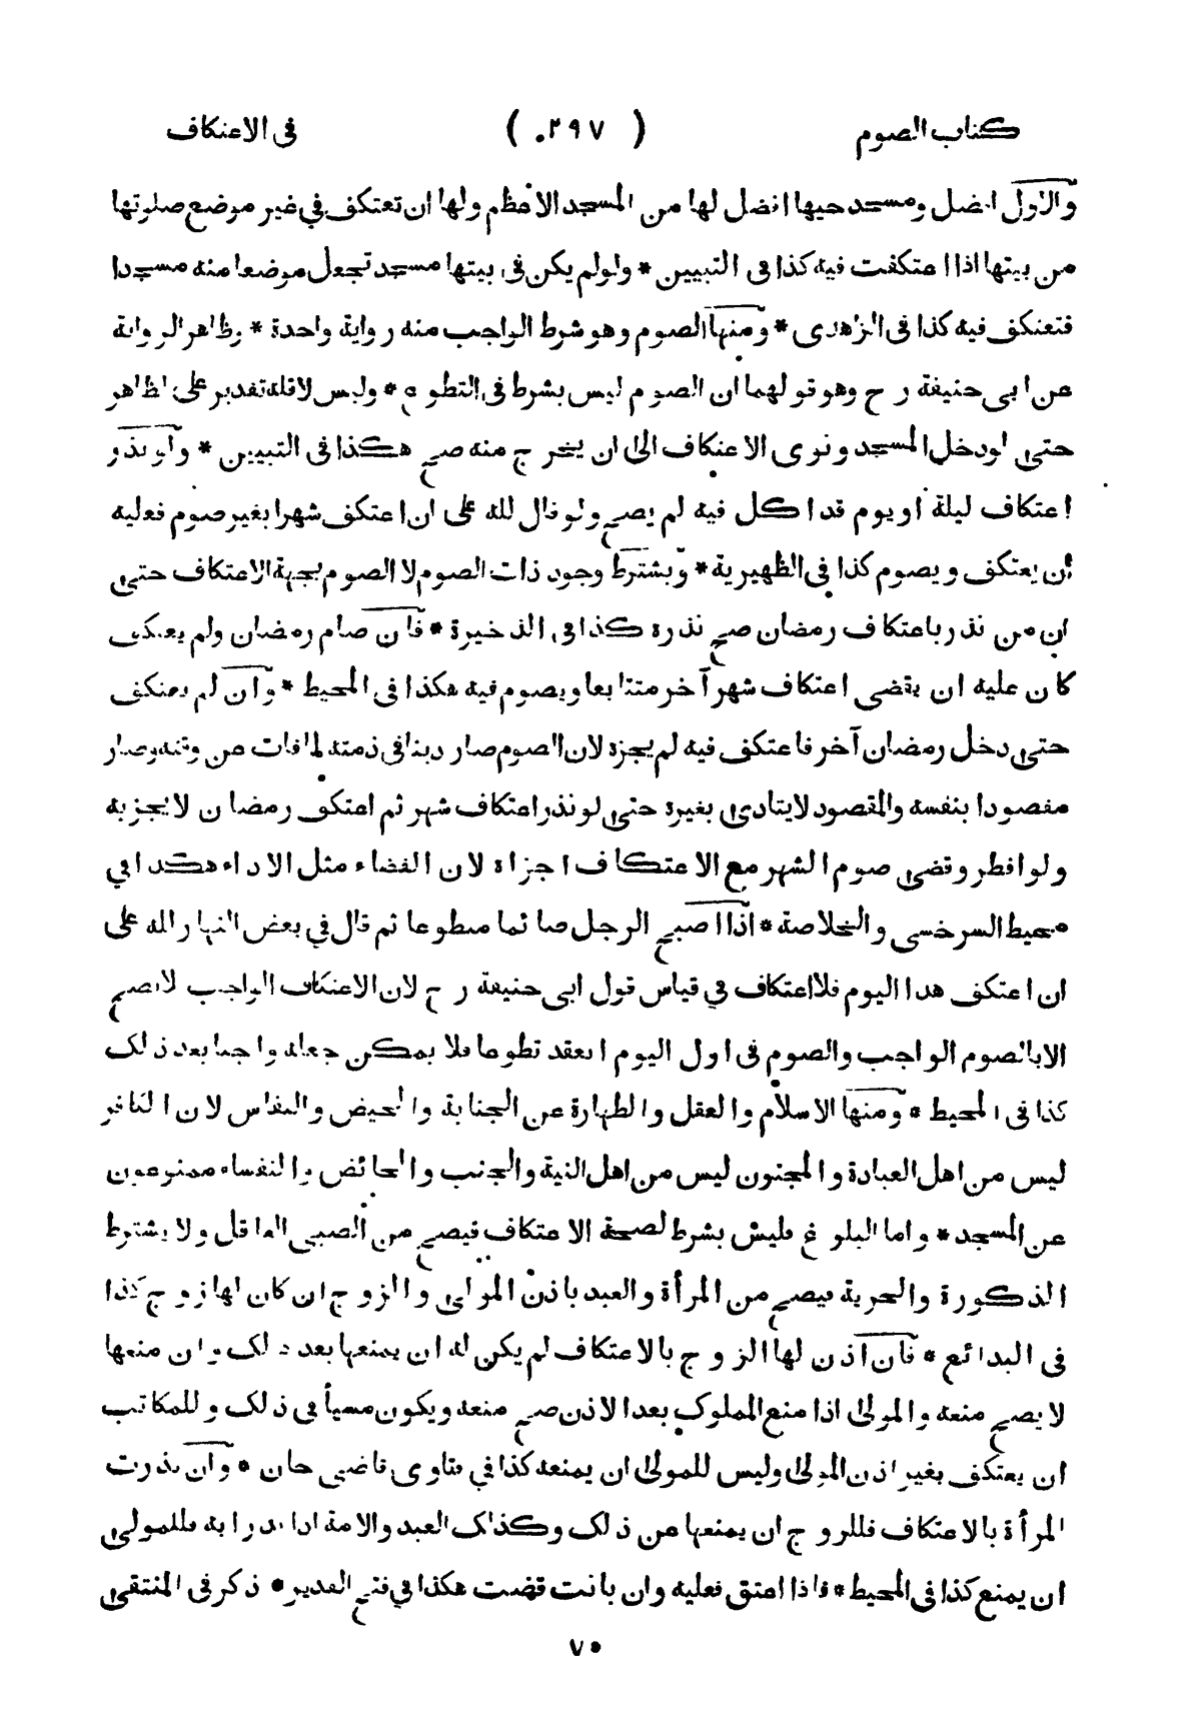 كتاب الصوم ( ٢٩٧ ) فى الاعتكاف
والاول افضل ومسجد حيها افضل لها من المسجد الاعظم ولها ان تعتكف في غير موضع صلوتها
من بيتها اذا اعتكفت فيه كذا فى التبيين * ولولم يكن فى بيتها مسجد تجعل موضعا منه مسجدا
فتعتكف فيه كذا فى الزاهدى * ومنها الصوم وهو شرط الواجب منه رواية واحدة * وظاهر الرواية
عن ابى حنيفة رح وهو قولهما ان الصوم ليس بشرط فى التطوع * وليس لاقله تقدير على الظاهر
حتى لودخل المسجد ونوى الاعتكاف الى ان يخرج منه صح هكذا فى التبيين * ولو نذر
اعتكاف ليلة او يوم قد اكل فيه لم يصح ولو قال لله على ان اعتكف شهرا بغير صوم فعليه
ان يعتكف ويصوم كذا فى الظهيرية * ويشترط وجود ذات الصوم لا الصوم بجهة الاعتكاف حتى
ان من نذر باعتكاف رمضان صح نذره كذا فى الذخيرة * فان صام رمضان ولم يعتكف
كان عليه ان يقضى اعتكاف شهر آخر متتابعا ويصوم فيه هكذا فى المحيط * وان لم يعتكف
حتى دخل رمضان آخر فاعتكف فيه لم يجزه لان الصوم صار دينا فى ذمته لما فات عن وقته وصار
مقصودا بنفسه والمقصود لايتادى بغيره حتى لو نذر اعتكاف شهر ثم اعتكف رمضان لا يجزيه
ولو افطر وقضى صوم الشهر مع الاعتكاف اجزاه لان القضاء مثل الاداء هكذا في
محيط السرخسى والخلاصة * اذا اصبح الرجل صائما متطوعا ثم قال في بعض النهار لله على
ان اعتكف هذا اليوم فلا اعتكاف في قياس قول ابى حنيفة رح لان الاعتكاف الواجب لا يصح
الا بالصوم الواجب والصوم فى اول اليوم انعقد تطوعا فلا يمكن جعله واجبا بعد ذلك
كذا فى المحيط * ومنها الاسلام والعقل والطهارة عن الجنابة والحيض والنفاس لان الكافر
ليس من اهل العبادة والمجنون ليس من اهل النية والجنب والحائض والنفساء ممنوعون
عن المسجد * واما البلوغ فليس بشرط لصحة الاعتكاف فيصح من الصبى العاقل ولا يشترط
الذكورة والحرية فيصح من المرأة والعبد باذن المولى والزوج ان كان لها زوج كذا
فى البدائع * فان اذن لها الزوج بالاعتكاف لم يكن له ان يمنعها بعد ذلك وان منعها
لا يصح منعه والمولى اذا منع المملوك بعد الاذن صح منعه ويكون مسيأ في ذلك وللمكاتب
ان يعتكف بغير اذن المولى وليس للمولى ان يمنعه كذا في فتاوى قاضى خان * وان نذرت
المرأة بالاعتكاف فللزوج ان يمنعها عن ذلك وكذلك العبد والامة اذا نذرا به فللمولى
ان يمنع كذا فى المحيط * فاذا اعتق فعليه وان بانت قضت هكذا في فتح القدير * ذكر فى المنتقى
٧٥